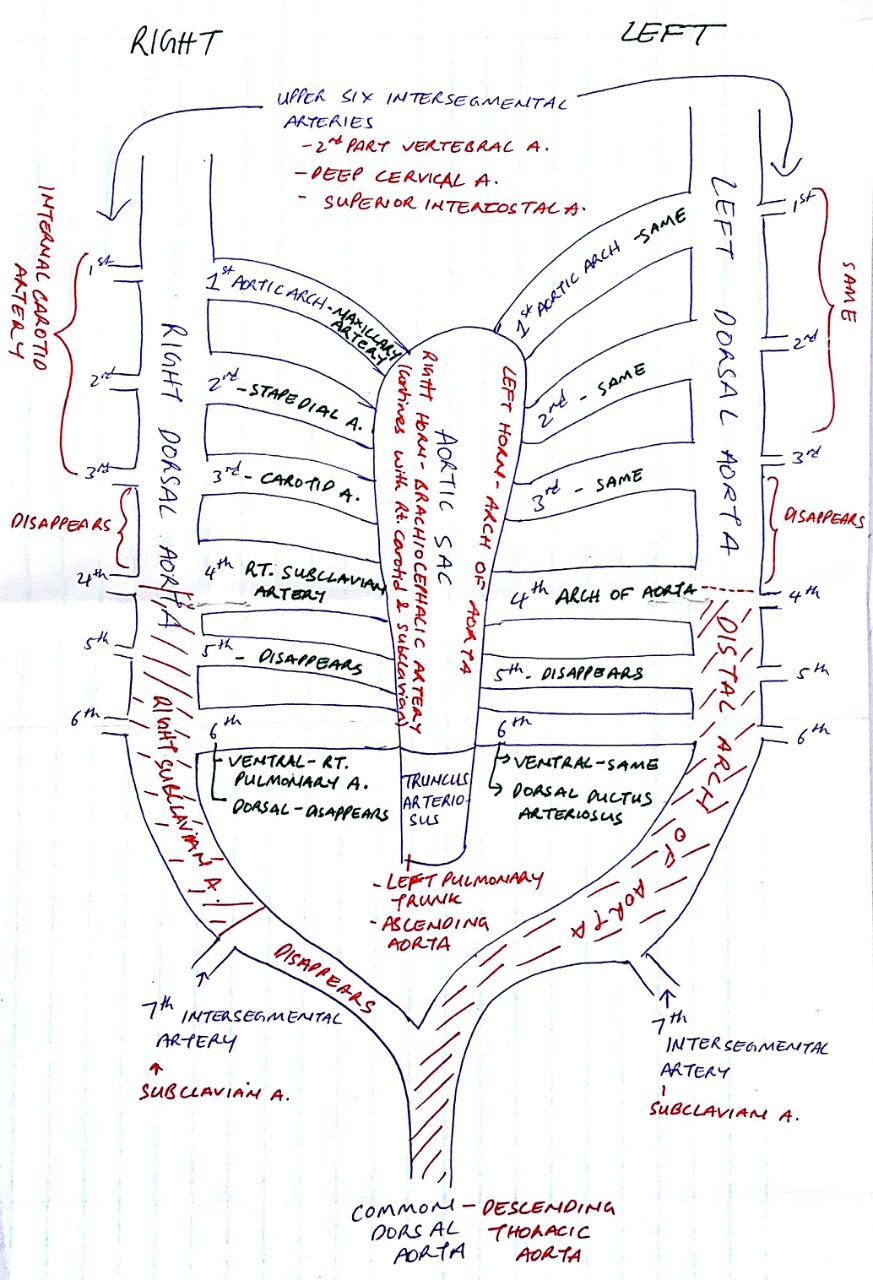 RIGHT
LEFT
UPPER SIX INTERSEGMENTAL
ARTERIES
- 2nd PART VERTEBRAL A.
- DEEP CERVICAL A.
- SUPERIOR INTERCOSTAL A.
INTERNAL CAROTID
ARTERY
1st
2nd
3rd
DISAPPEARS
4th
5th
6th
RIGHT DORSAL AORTA
RIGHT SUBCLAVIAN A.
1st AORTIC ARCH - MAXILLARY
ARTERY
2nd - STAPEDIAL A.
3rd - CAROTID A.
4th RT. SUBCLAVIAN
ARTERY
5th - DISAPPEARS
6th
VENTRAL - RT.
PULMONARY A.
DORSAL - DISAPPEARS
RIGHT HORN - BRACHIOCEPHALIC ARTERY
(contines with Rt. carotid & subclavian)
AORTIC SAC
LEFT HORN - ARCH OF AORTA
TRUNCUS
ARTERIO-
SUS
- LEFT PULMONARY
TRUNK
- ASCENDING
AORTA
1st AORTIC ARCH - SAME
2nd - SAME
3rd - SAME
4th ARCH OF AORTA
5th - DISAPPEARS
6th
VENTRAL - SAME
DORSAL DUCTUS
ARTERIOSUS
LEFT DORSAL AORTA
DISTAL ARCH OF AORTA
1st
2nd
SAME
3rd
DISAPPEARS
4th
5th
6th
DISAPPEARS
7th INTERSEGMENTAL
ARTERY
SUBCLAVIAN A.
7th
INTERSEGMENTAL
ARTERY
SUBCLAVIAN A.
COMMON - DESCENDING
DORSAL THORACIC
AORTA AORTA